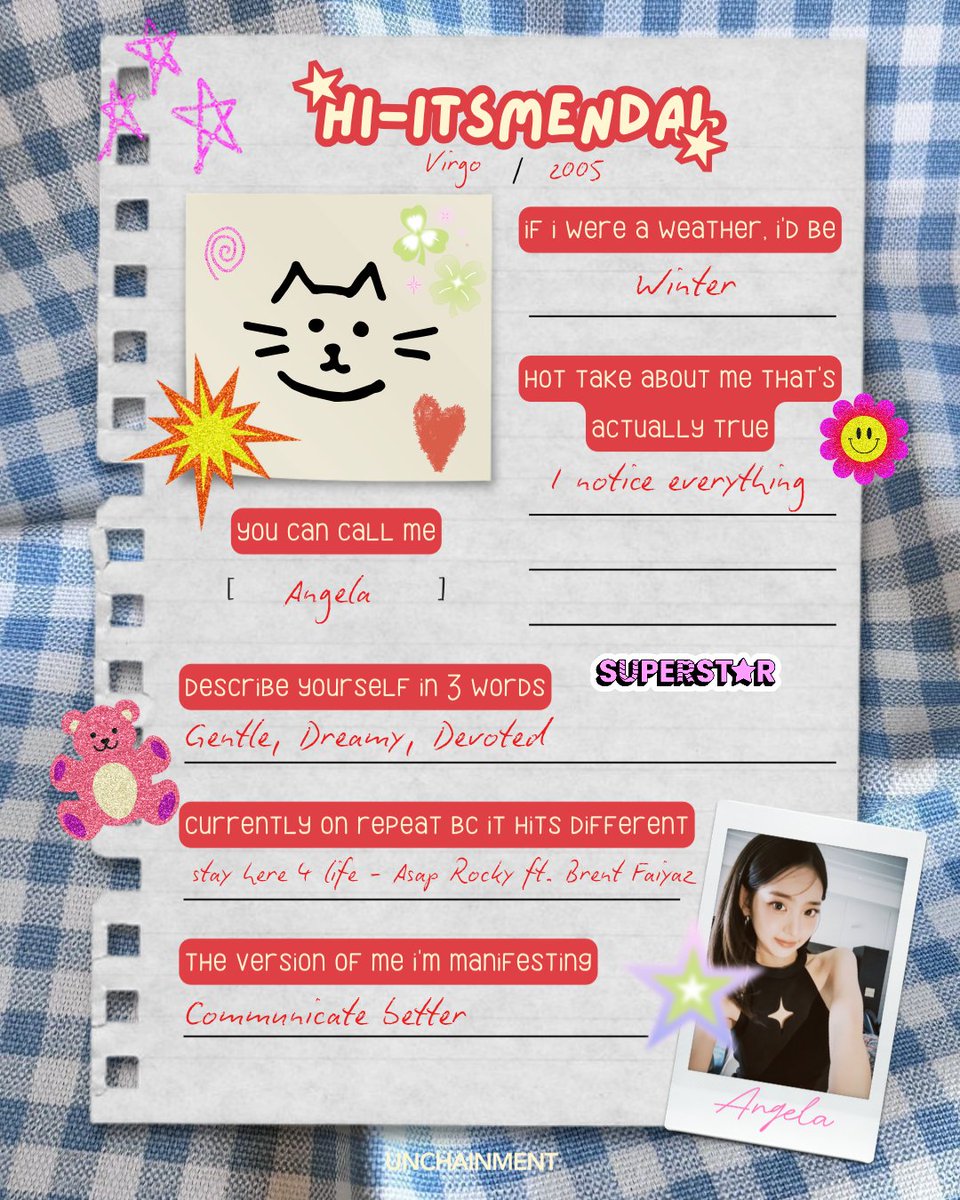 HI-ITSMENDAL
Virgo / 2005
if i were a weather, i'd be
Winter
Hot take about me that's
actually true
I notice everything
you can call me
[ Angela ]
SUPERSTAR
Describe yourself in 3 words
Gentle, Dreamy, Devoted
currently on repeat bc it hits different
stay here 4 life - Asap Rocky ft. Brent Faiyaz
The version of me i'm manifesting
Communicate better
Angela
UNCHAINMENT